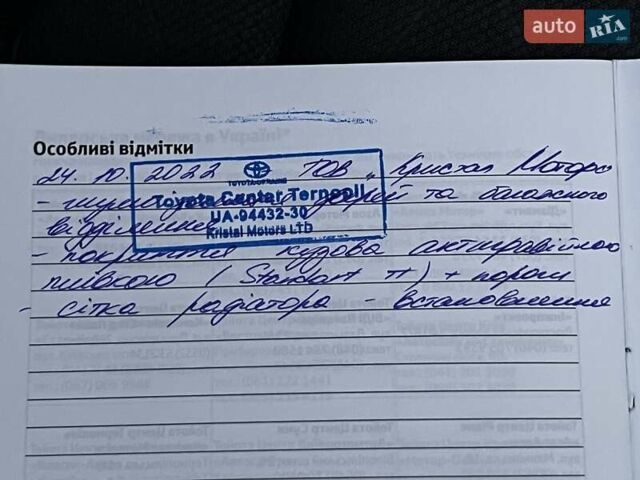 auto RIA.com
Особливі відмітки
24. 10. 2022 ТОВ „Кристал Моторс
TOYOTA-UKRAINE
Toyota Center Ternopil
UA-94432-30
Kristal Motors LTD
- дверей та багажного
відділення
- покриття кузова антигравійною
плівкою (Standart П) + пороги
- сітка радіатора - встановлення